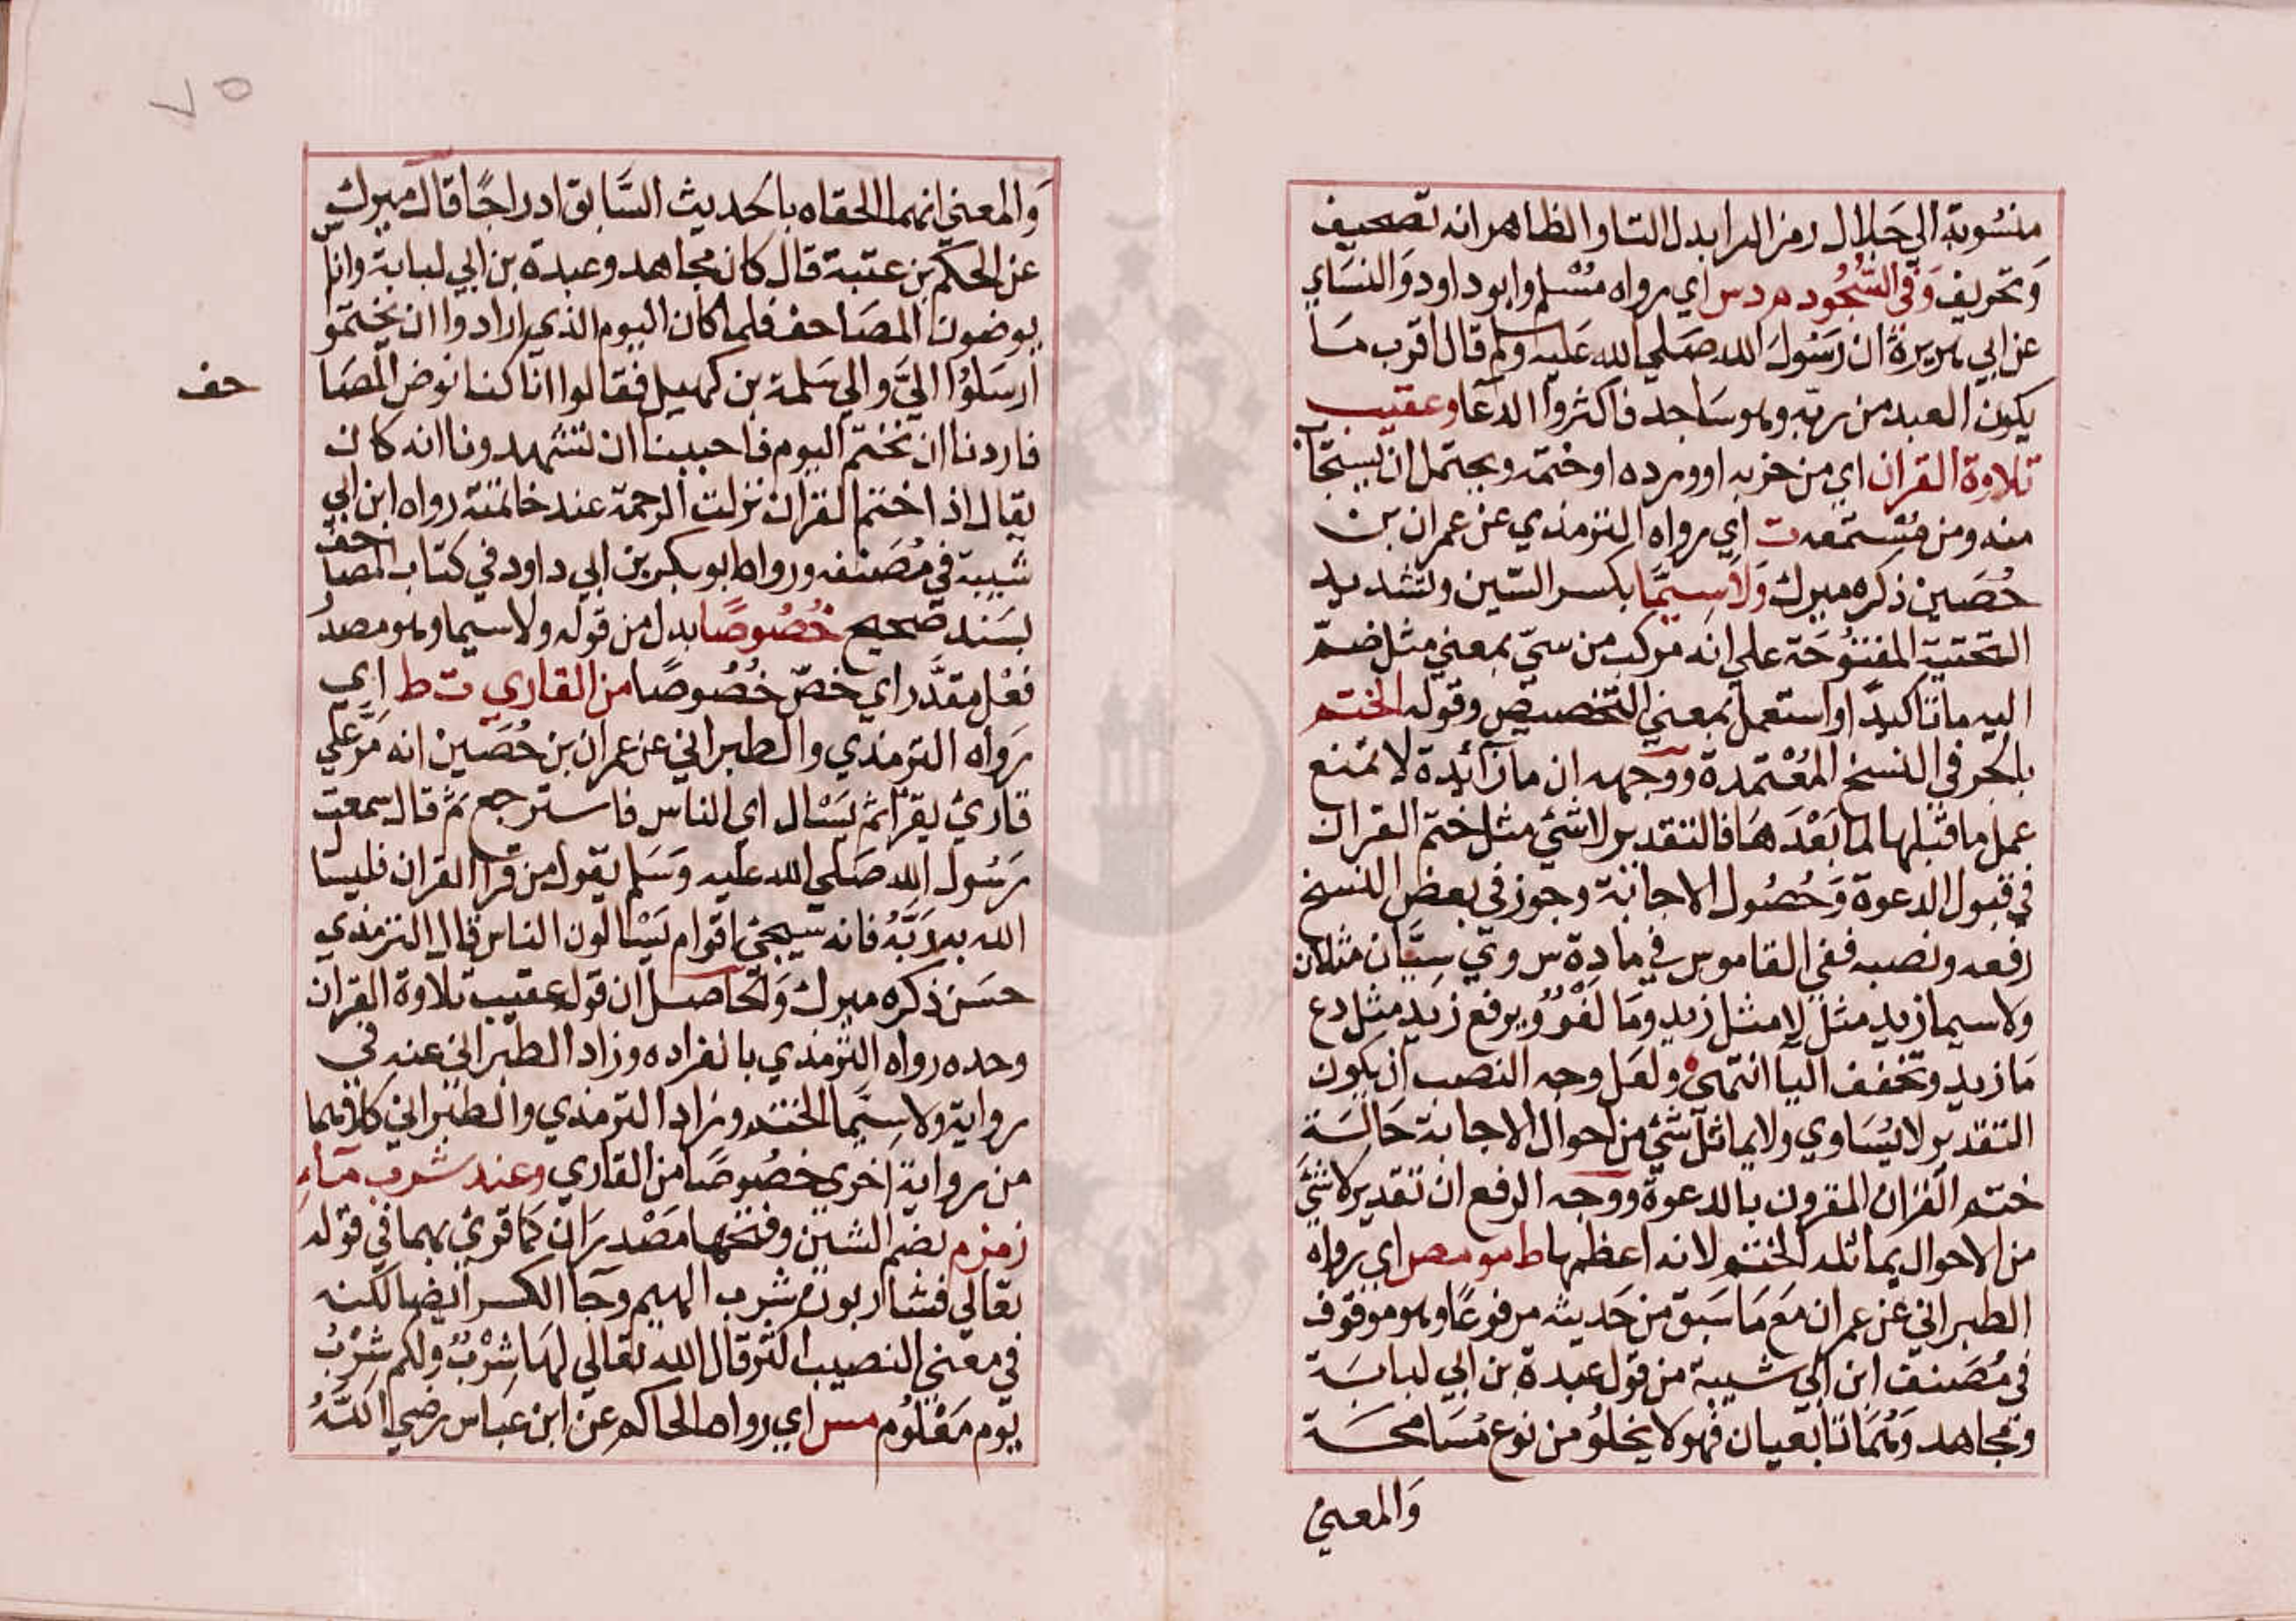 منسوبة الي جلال رمز الرا بدل التا والظاهر انه تصحيف
وتحريف وفي السجود م د س اي رواه مسلم وابو داود والنساي
عن ابي هريرة ان رسول الله صلي الله عليه وسلم قال اقرب ما
يكون العبد من ربه وهو ساجد فاكثروا الدعا وعقيب
تلاوة القران اي من حزبه او ورده او ختمه ويحتمل ان يستجا
منه ومن مستمعه ت اي رواه الترمذي عن عمران بن
حصين ذكره ميرك ولا سيما بكسر السين وتشديد
التحتية المفتوحة علي انه مركب من سيّ بمعني مثل ضم
اليه ما تاكيدًا واستعمل بمعني التخصيص وقوله الختم
بالجر في النسخ المعتمدة ووجهه ان ما زآئدة لا تمنع
عمل ما قبلها لما بعدها فالتقدير لا شئ مثل ختم القران
في قبول الدعوة وحصول الاجابة وجوز في بعض النسخ
رفعه ونصبه ففي القاموس في مادة س و ي سيّان مثلان
ولا سيما زيد مثل لا مثل زيد وما لغوٌ ويرفع زيد مثل دع
ما زيد وتخفف اليا انتهي ولعل وجه النصب ان يكون
التقدير لا يساوي ولا يماثل شئ من احوال الاجابة حالة
ختم القران المقرون بالدعوة ووجه الرفع ان تقديره لا شئ
من الاحوال يماثله الختم لانه اعظمها ط مو مص اي رواه
الطبراني عن عمران مع ما سبق من حديثه مرفوعًا وهو موقوف
في مصنف ابن ابي شيبة من قول عبدة بن ابي لبابة
ومجاهد وهما تابعيان فهو لا يخلو من نوع مسامحة
والمعني
٧٥
والمعني انهما الحقاه بالحديث السابق ادراجًا قال ميرك
عن الحكم بن عتبة قال كان مجاهد وعبدة بن ابي لبابة واناس
يوضون المصاحف فلما كان اليوم الذي ارادوا ان يختمو
ارسلوا اليّ والي سلمة بن كهيل فقالوا انا كنا نوض المصا
حف
فاردنا ان نختم اليوم فاحببنا ان تشهدونا انه كان
يقال اذا ختم القران نزلت الرحمة عند خاتمته رواه ابن ابي
شيبة في مصنفه ورواه ابو بكر بن ابي داود في كتاب المصاحف
بسند صحيح خصوصًا بدل من قوله ولا سيما وهو مصدر
فعل مقدر اي خصّ خصوصًا من القاري ت ط اي
رواه الترمذي والطبراني عن عمران بن حصين انه مر علي
قارئ يقرا ثم يسال اي الناس فاسترجع ثم قال سمعت
رسول الله صلي الله عليه وسلم يقول من قرا القران فليسال
الله به لابد فانه سيجئ اقوام يسالون الناس قال الترمذي
حسن ذكره ميرك والحاصل ان قوله عقيب تلاوة القران
وحده رواه الترمذي بانفراده وزاد الطبراني عنه في
رواية ولا سيما الختم وزاد الترمذي والطبراني كلاهما
من رواية اخرى خصوصًا من القاري وعند شرب مآء
زمزم بضم الشين وفتحها مصدران كما قوئ بهما في قوله
تعالي فشاربون شرب الهيم وجآ الكسر ايضا لكنه
في معني النصيب اكثر قال الله تعالي لها شِرْبٌ ولكم شِرْبُ
يوم معلوم مس اي رواه الحاكم عن ابن عباس رضي الله